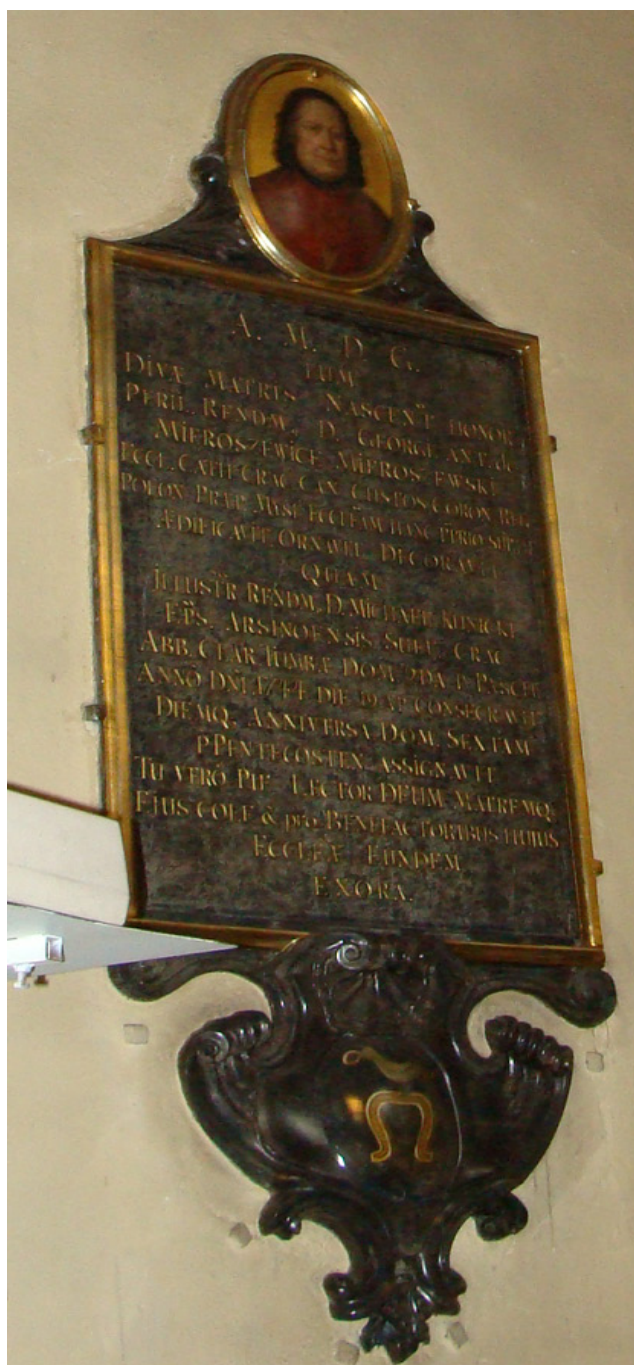 A. M. D. G.
TUM
DIVÆ MATRIS NASCENT HONORI
PERILL. RENDM. D. GEORGE ANT. de
MIEROSZEWICE MIEROSZEWSKI
ECCL. CATH. CRAC. CAN. CUSTOS CORON. REG.
POLON. PRÆP. ECCLĒAM HANC
ÆDIFICAVIT. ORNAVIT. DECORAVIT.
QUAM
ILLUSTR RENDM. D. MICHAEL KUNICKI
EPS. ARSINOENSIS SUFF. CRAC
ABB. CLAR. TUMBÆ DOM. 2DA P. PASCH.
ANNÔ DNI. DIE CONSECRAVIT
DIEMQ. ANNIVERSA. DOM. SEXTAM
PPENTECOSTEN ASSIGNAVIT
TU VERÔ PIE LECTOR DEUM MATREMQ.
EJUS COLE & pro BENEFACTORIBUS HUIUS
ECCLÆ EUNDEM
EXORA.